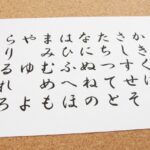 かきくけ
さしすせそ
たちつてと
なにぬねの
はひふへほ
まみむめも
や ゆ よ
らりるれろ